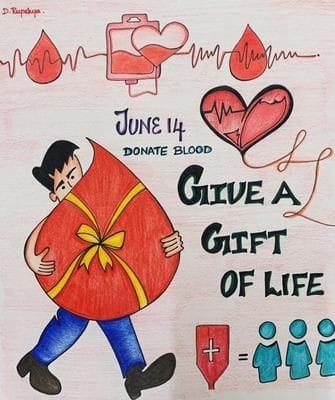 D.
JUNE 14
DONATE BLOOD
GIVE A
GIFT
OF LIFE
=